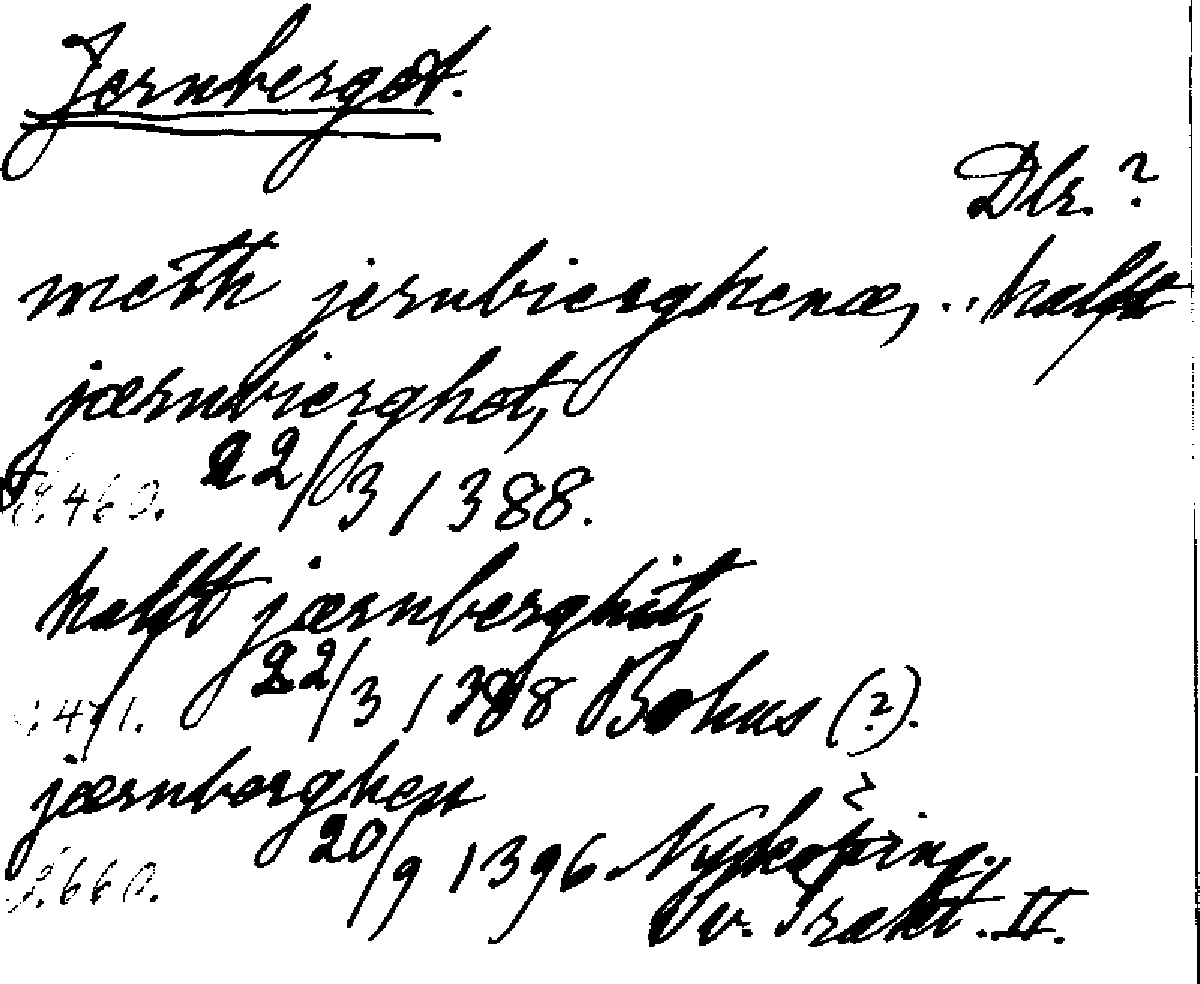 Jernberget.
Dlr. ?
meth jernbierghenæ, .. halfft
jærnbierghet,
22/3 1388.
460.
halfft jærnberghit,
22/3 1388 Bohus (?).
jærnberghen
20/9 1396. Nyköping.
660.
Sv. Trakt. II.